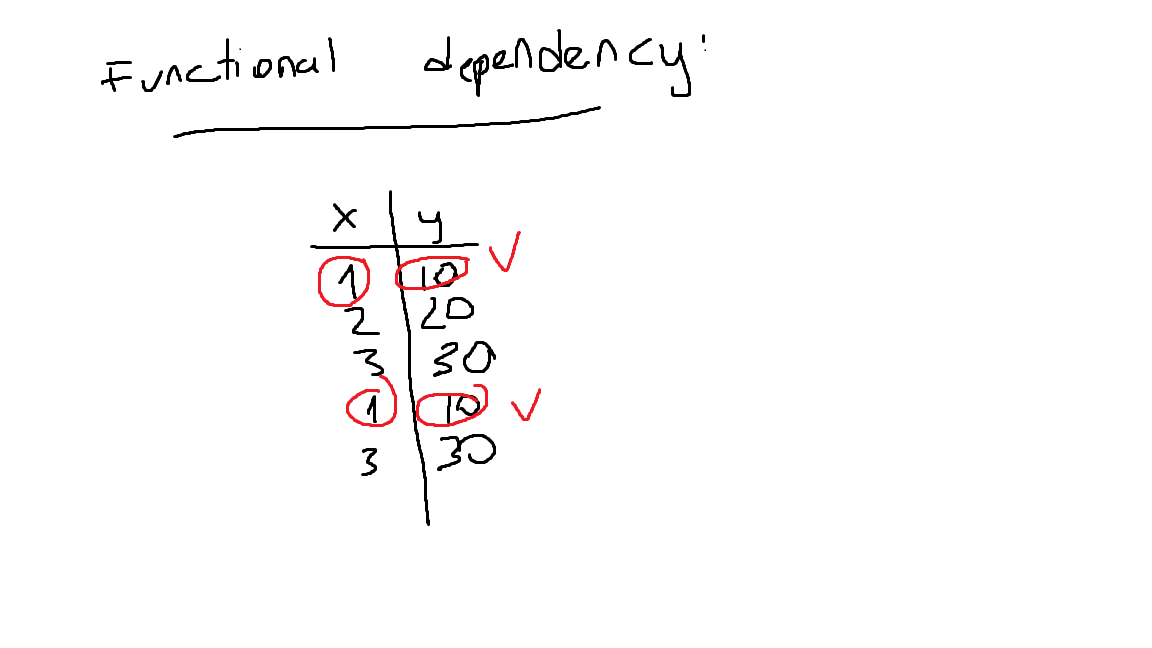 Functional dependency:
x y
1 10
2 20
3 30
1 10
3 30